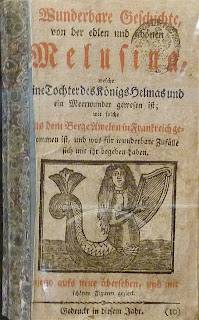 Wunderbare Geschichte,
von der edlen und schönen
Melusina,
welche
eine Tochter des Königs Helmas und
ein Meerwunder gewesen ist;
wie solche
aus dem Berge Awelon in Frankreich ge-
kommen ist, und was für wunderbare Zufälle
sich mit ihr begeben haben.
aufs neue übersehen, und mit
schönen Figuren geziert.
Gedruckt in diesem Jahr. (10)